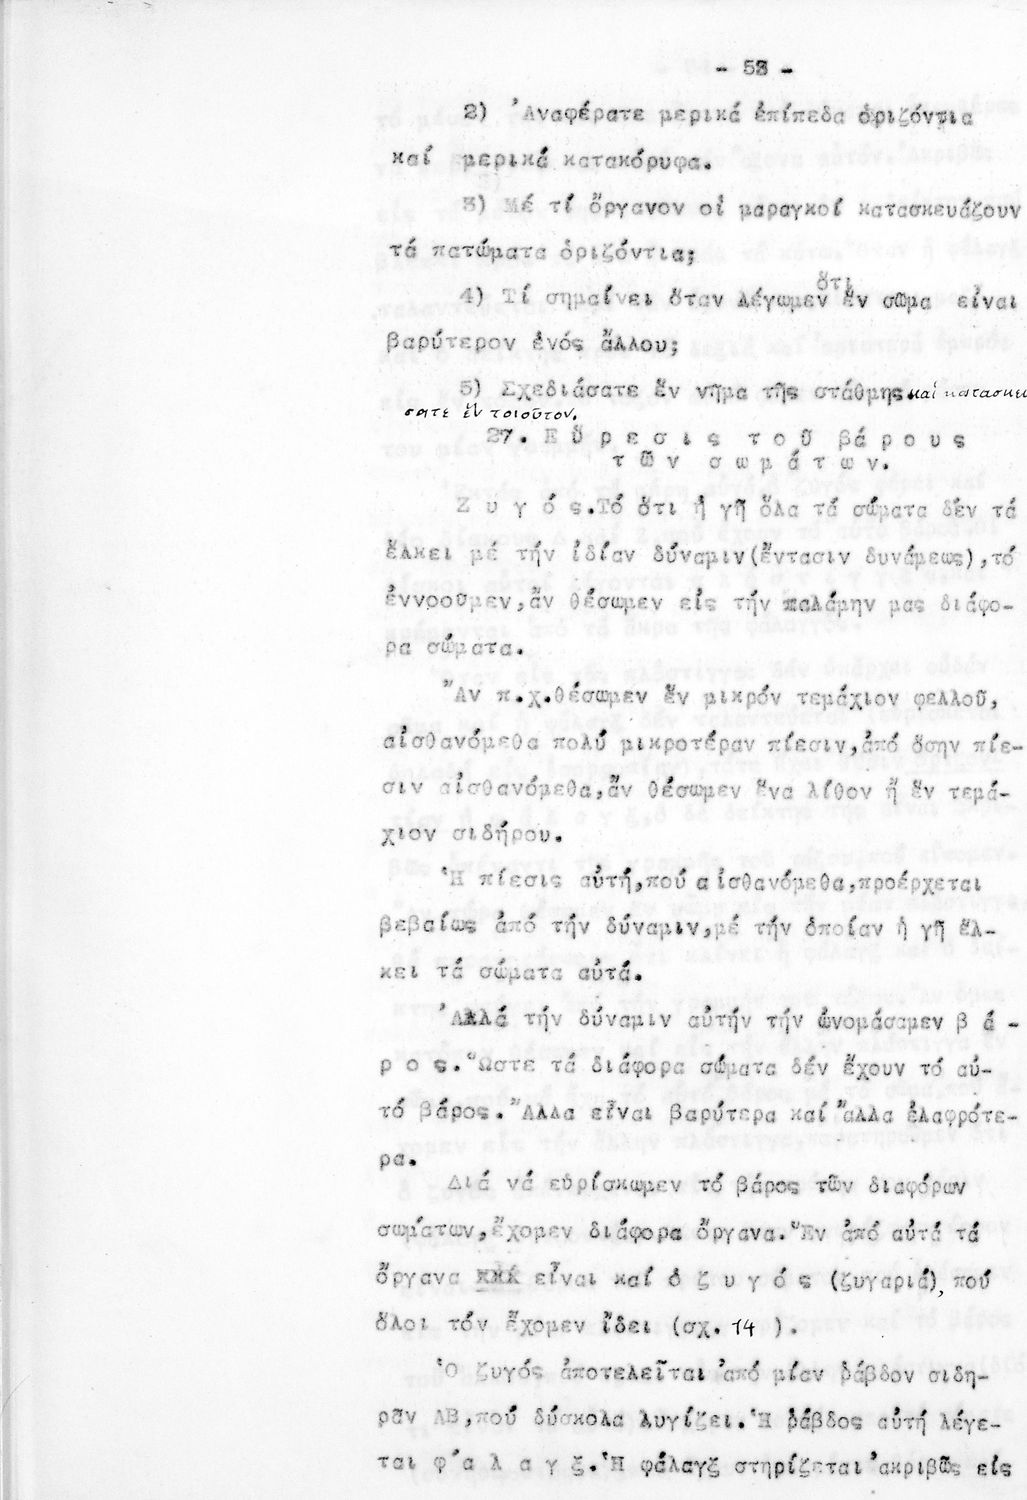 - 53 -
2) Ἀναφέρατε μερικά ἐπίπεδα ὁριζόντια
καί μερικά κατακόρυφα.
3) Μέ τί ὄργανον οἱ μαραγκοί κατασκευάζουν
τά πατώματα ὁριζόντια;
ὅτι
4) Τί σημαίνει ὅταν λέγωμεν ἕν σῶμα εἶναι
βαρύτερον ἑνός ἄλλου;
5) Σχεδιάσατε ἕν νῆμα τῆς στάθμης καί κατασκευ
σατε ἕν τοιοῦτον.
27. Εὕρεσις τοῦ βάρους
τῶν σωμάτων.
Ζ υ γ ό ς. Τό ὅτι ἡ γῆ ὅλα τά σώματα δέν τά
ἕλκει μέ τήν ἰδίαν δύναμιν(ἔντασιν δυνάμεως), τό
ἐννροῦμεν, ἄν θέσωμεν εἰς τήν παλάμην μας διάφο-
ρα σώματα.
Ἄν π.χ.θέσωμεν ἕν μικρόν τεμάχιον φελλοῦ,
αἰσθανόμεθα πολύ μικροτέραν πίεσιν, ἀπό ὅσην πίε-
σιν αἰσθανόμεθα, ἄν θέσωμεν ἕνα λίθον ἤ ἕν τεμά-
χιον σιδήρου.
Ἡ πίεσις αὐτή, πού αἰσθανόμεθα, προέρχεται
βεβαίως ἀπό τήν δύναμιν, μέ τήν ὁποίαν ἡ γῆ ἕλ-
κει τά σώματα αὐτά.
Ἀλλά τήν δύναμιν αὐτήν τήν ὠνομάσαμεν β ά -
ρ ο ς. Ὥστε τά διάφορα σώματα δέν ἔχουν τό αὐ-
τό βάρος. Ἄλλα εἶναι βαρύτερα καί ἄλλα ἐλαφρότε-
ρα.
Διά νά εὑρίσκωμεν τό βάρος τῶν διαφόρων
σωμάτων, ἔχομεν διάφορα ὄργανα. Ἕν ἀπό αὐτά τά
ὄργανα εἶναι καί ὁ ζ υ γ ό ς (ζυγαριά), πού
ὅλοι τόν ἔχομεν ἴδει (σχ. 14 ).
Ὁ ζυγός ἀποτελεῖται ἀπό μίαν ῥάβδον σιδη-
ρᾶν ΑΒ, πού δύσκολα λυγίζει. Ἡ ῥάβδος αὐτή λέγε-
ται φ ά λ α γ ξ. Ἡ φάλαγξ στηρίζεται ἀκριβῶς εἰς